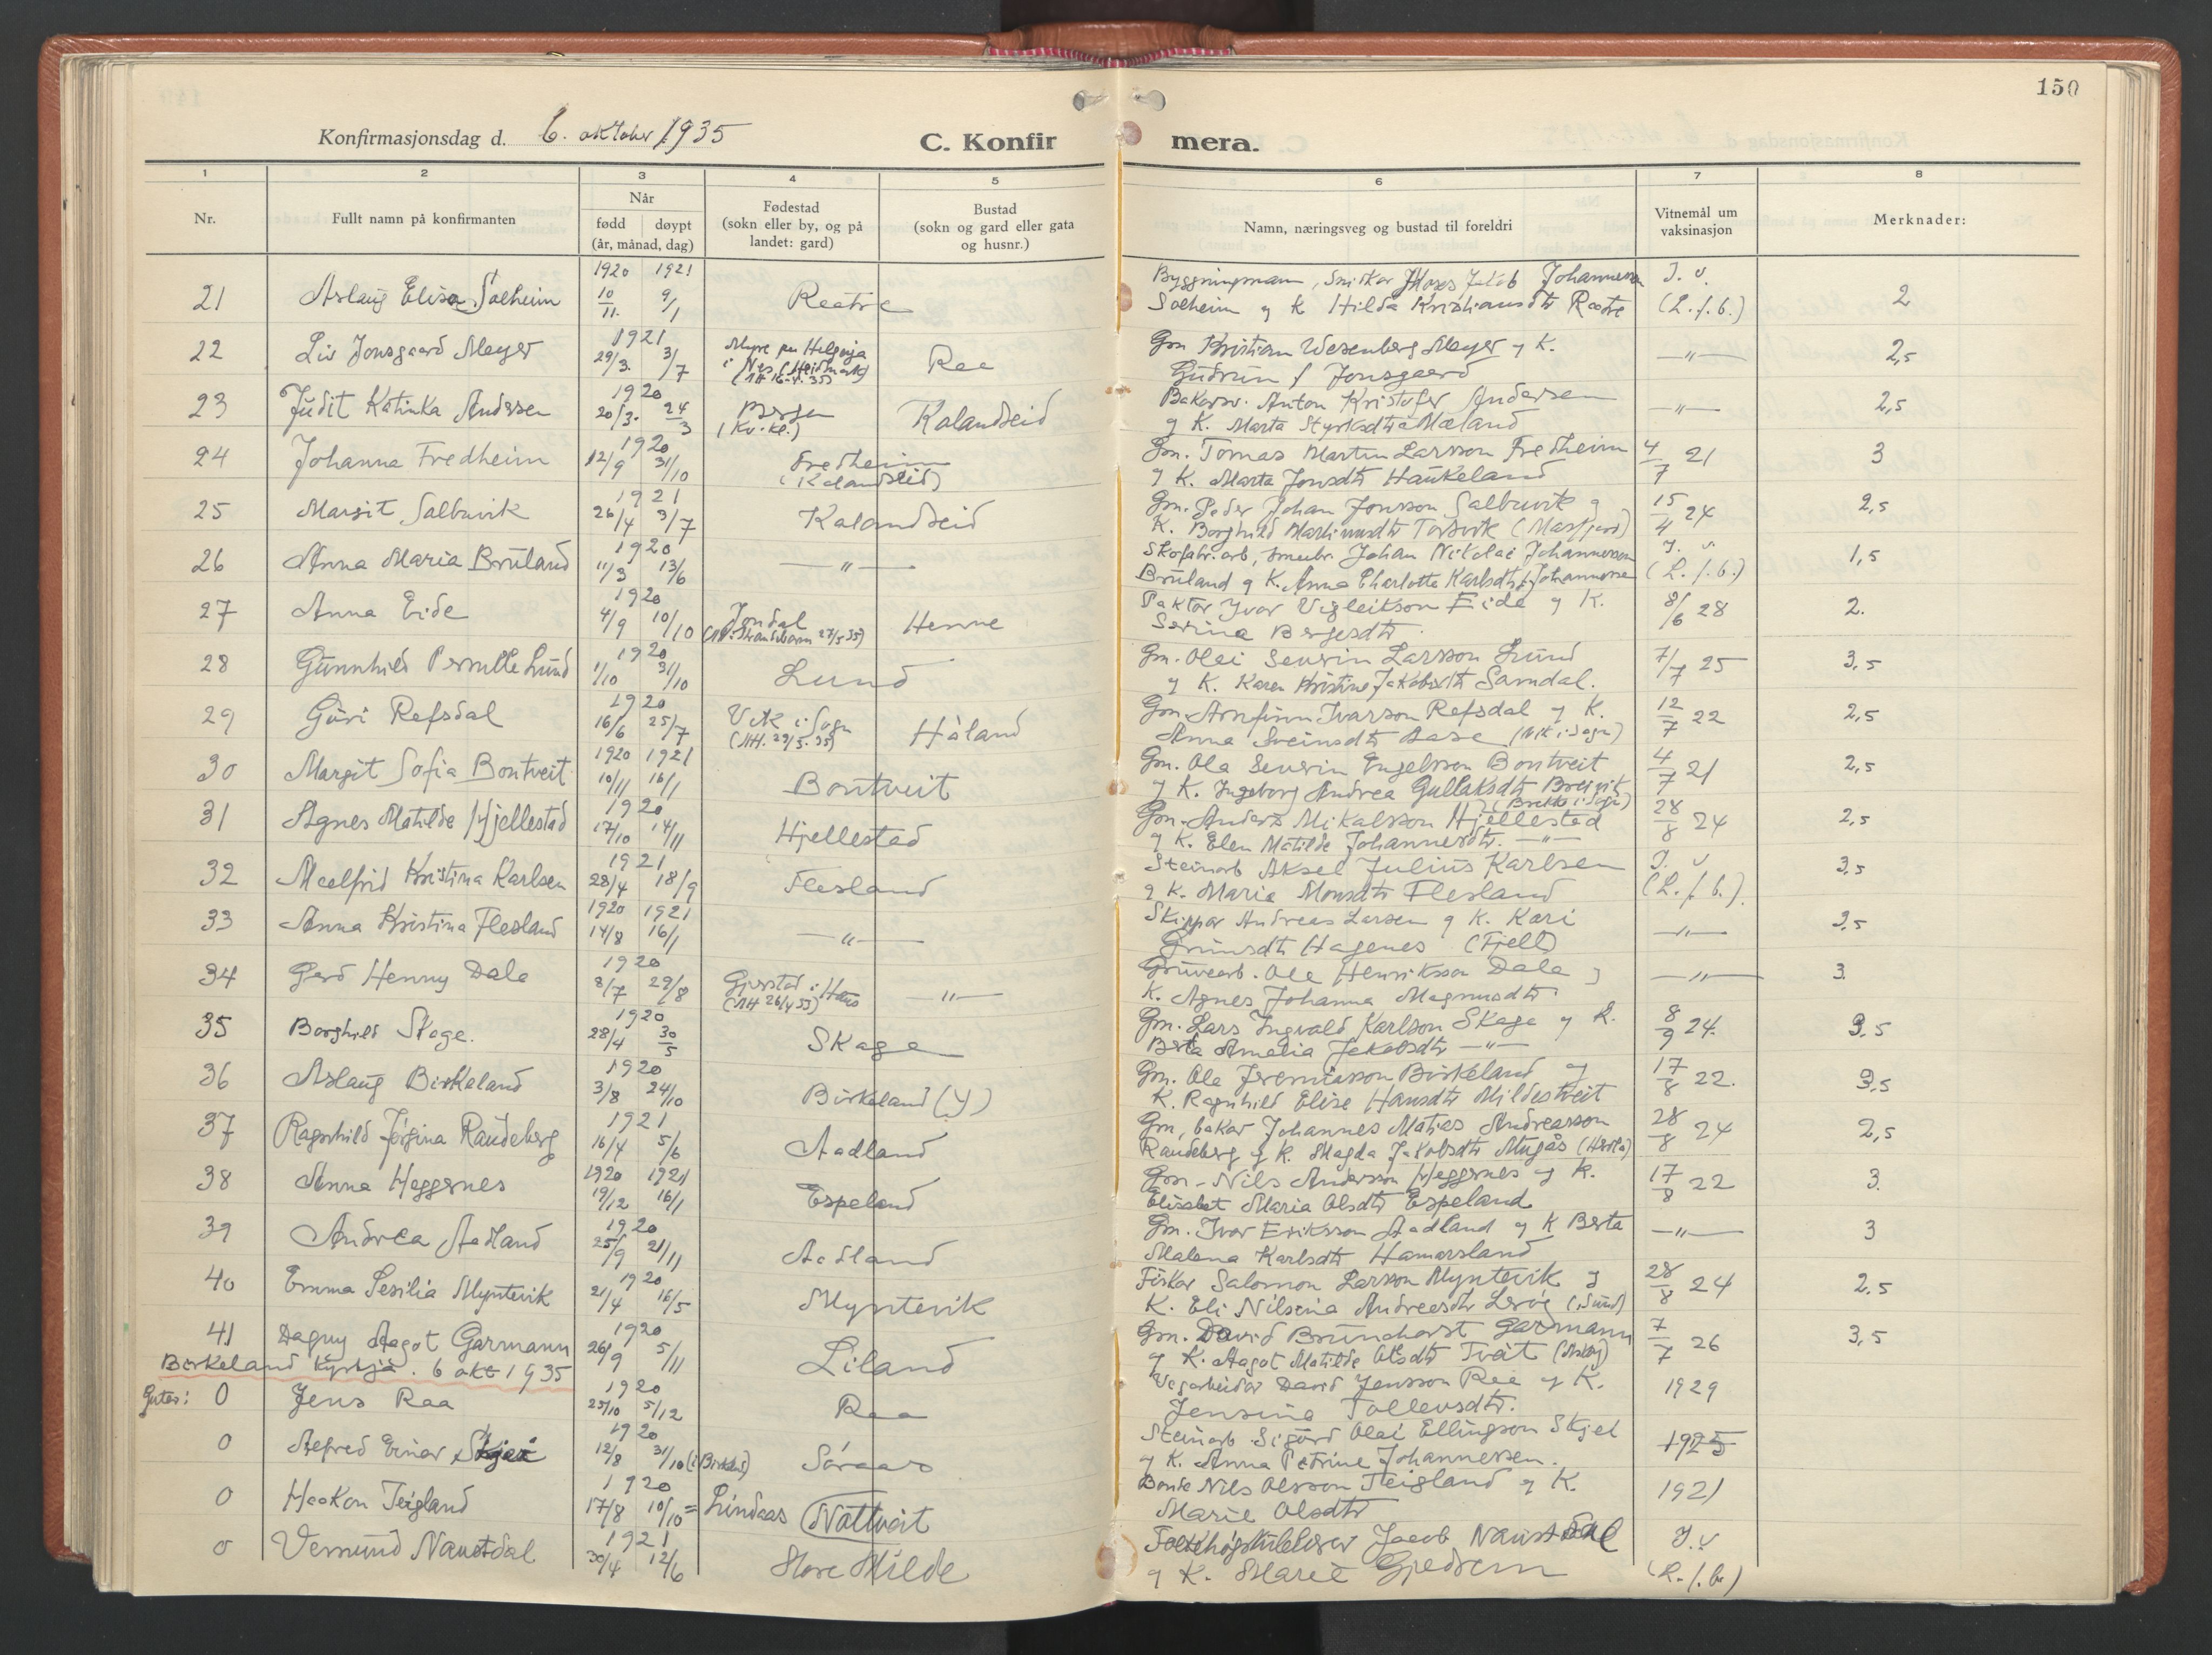 150
Konfirmasjonsdag d. 6. oktober 1935
C. Konfirmera.
1 2 3 4 5 6 7 8
Nr. Fullt namn på konfirmanten Når fødd døypt (år, månad, dag) Fødestad (sokn eller by, og på landet: gard) Bustad (sokn og gard eller gata og husnr.) Namn, næringsveg og bustad til foreldri Vitnemål um vaksinasjon Merknader:
1920 1921 Byggningmann, Snikkar Moses Jakob Johannessen I. v.
21 Aslaug Elisa Solheim 10/11. 9/1 Reatre Solheim og K Hilda Kristiansdtr Reatre (L. f. b.) 2
1921 Gm Kristian Wesenberg Meyer og K.
22 Liv Jonsgaard Meyer 29/3. 3/7 Myre pr Helgøya i Nes (Heidmark) Raa Gudrun f Jonsgaard —"— 2,5
1920 Bakarsv. Anton Kristofer Andersen
23 Judit Katinka Andersen 20/3. 24/3 Bergen (Kv. kl.) Kalandseid og K. Marta Styrksdtr Mæland —"— 2,5
1920 Gm. Tomas Martin Larsson Fredheim
24 Johanna Fredheim 12/9 31/10 Fredheim (Kalandseid) og K. Marta Jonsdtr Haukeland 4/7 21 3
1921 Gm. Peder Johan Jonsson Salbuvik og
25 Margit Salbuvik 26/4 3/7 Kalandseid K. Borghild Martinusdtr (Masfjord) 15/4 24 2,5
1920 Skofabr. arb, Johan Nikolai Johannessen I. v.
26 Anna Maria Bruland 11/3 13/6 —"— Bruland og K. Anna Charlotte Karlsdtr f. Johannessen (L. f. b.) 1,5
1920 Faktor Ivar Vigleikson Eide og K.
27 Anna Eide 4/9 10/10 Jondal 27/5 35) Henne Serina Bergesdtr 8/6 28 2.
1920 Gm. Olai Severin Larsson Lund
28 Gunnhild Pernille Lund 1/10 31/10 Lund og K. Karen Kristine Jakobsdtr Samdal. 7/7 25 3,5
1920 Gm. Arnfinn Ivarson Refsdal og K.
29 Guri Refsdal 16/6 25/7 Vik i Sogn (NH. 29/5. 35) Håland Anna Sveinsdtr Aase (Vik i Sogn) 12/7 22 2,5
1920 1921 Gm. Ola Severin Engelsson Bontveit
30 Margit Sofia Bontveit 10/11 16/1 Bontveit og K. Ingeborg Andrea Gullaksdtr Breivik (Brekke i Sogn) 4/7 21 2,5
1920 Gm. Anders Mikalsson Hjellestad
31 Agnes Matilde Hjellestad 17/10 14/11 Hjellestad og K. Elen Matilde Johannesdtr. —"— 28/8 24 2,5
1921 Steinarb Aksel Julius Karlsen I. v
32 Maelfrid Kristina Karlsen 28/4 18/9 Flesland og K. Maria Monsdtr Flesland (L. f. b.). 3,5
1920 1921 Skippar Andreas Larsen og K. Kari
33 Anna Kristina Flesland 14/8 16/1 —"— Hagenes (Fjell) —"— 3,5
1920 Gruvearb. Ole Henriksson Dale og
34 Gerd Henny Dale 8/7 29/8 Gjerstad i Haus (NH 26/4 35) —"— K. Agnes Johanna Magnusdtr —"— 3.
1920 Gm. Lars Ingvald Karlson Skage og K.
35 Borghild Skage. 28/4 30/5 Skage Berta Amalia Jakobsdtr —"— 8/9 24. 3,5
1920 Gm. Ole Jeremiasson Birkeland og
36 Aslaug Birkeland 3/8 24/10 Birkeland (Y) K. Ragnhild Elise Hansdtr Mildestveit 17/8 22. 3,5
1921 Gm, bakar Johannes Matias Andreasson
37 Ragnhild Jørgina Raudeberg 16/4 5/6 Aadland Raudeberg og K. Magda Jakobsdtr Mugås (Herdla) 28/8 24 2,5
1920 1921 Gm. Nils Andersson Heggernes og K.
38 Anna Heggernes 19/12 16/1 Espeland Elisabet Maria Olsdtr Espeland 17/8 22 3.
1920 Gm. Ivar Eriksson Aadland og K Berta
39 Andrea Aadland 25/9 21/11 Aadland Malena Karlsdtr Hamarsland —"— 3
1920 Fiskar Salomon Larsson Myntevik og
40 Emma Sesilia Myntevik 21/4 16/5 Myntevik K. Eli Nilsina Andreasdtr Lerøe (Sund) 28/8 24 2,5
1920 Gm. David Brunchorst Garmann
41 Dagny Aagot Garmann 26/9 5/11 Liland og K. Aagot Matilde Olsdtr Tveit (Askøy) 7/7 26 3,5
Birkeland kyrkja. 6 okt 1935
1920 Vegarbeidar David Jensson Raa og K.
Gutar: 0 Jens Raa 25/10 5/12 Raa Jensina Tollevsdtr. 1929
1920 Steinarb Sigurd Olai Ellingson Skjel
0 Alfred Einar 12/8 31/10 (i Birkel) Søraas og K. Anna Petrine Johannessen. 1925
1920 Bonde Nils Olsson Teigland og K.
0 Haakon Teigland 17/8 10/10 = Lindaas (Nattveit Marie Olsdtr 1921
1921 Jacob Naustdal I. v
0 Vermund Naustdal 30/4 12/6 Store Milde og K. Marie Gjedrem (L. f. b.)